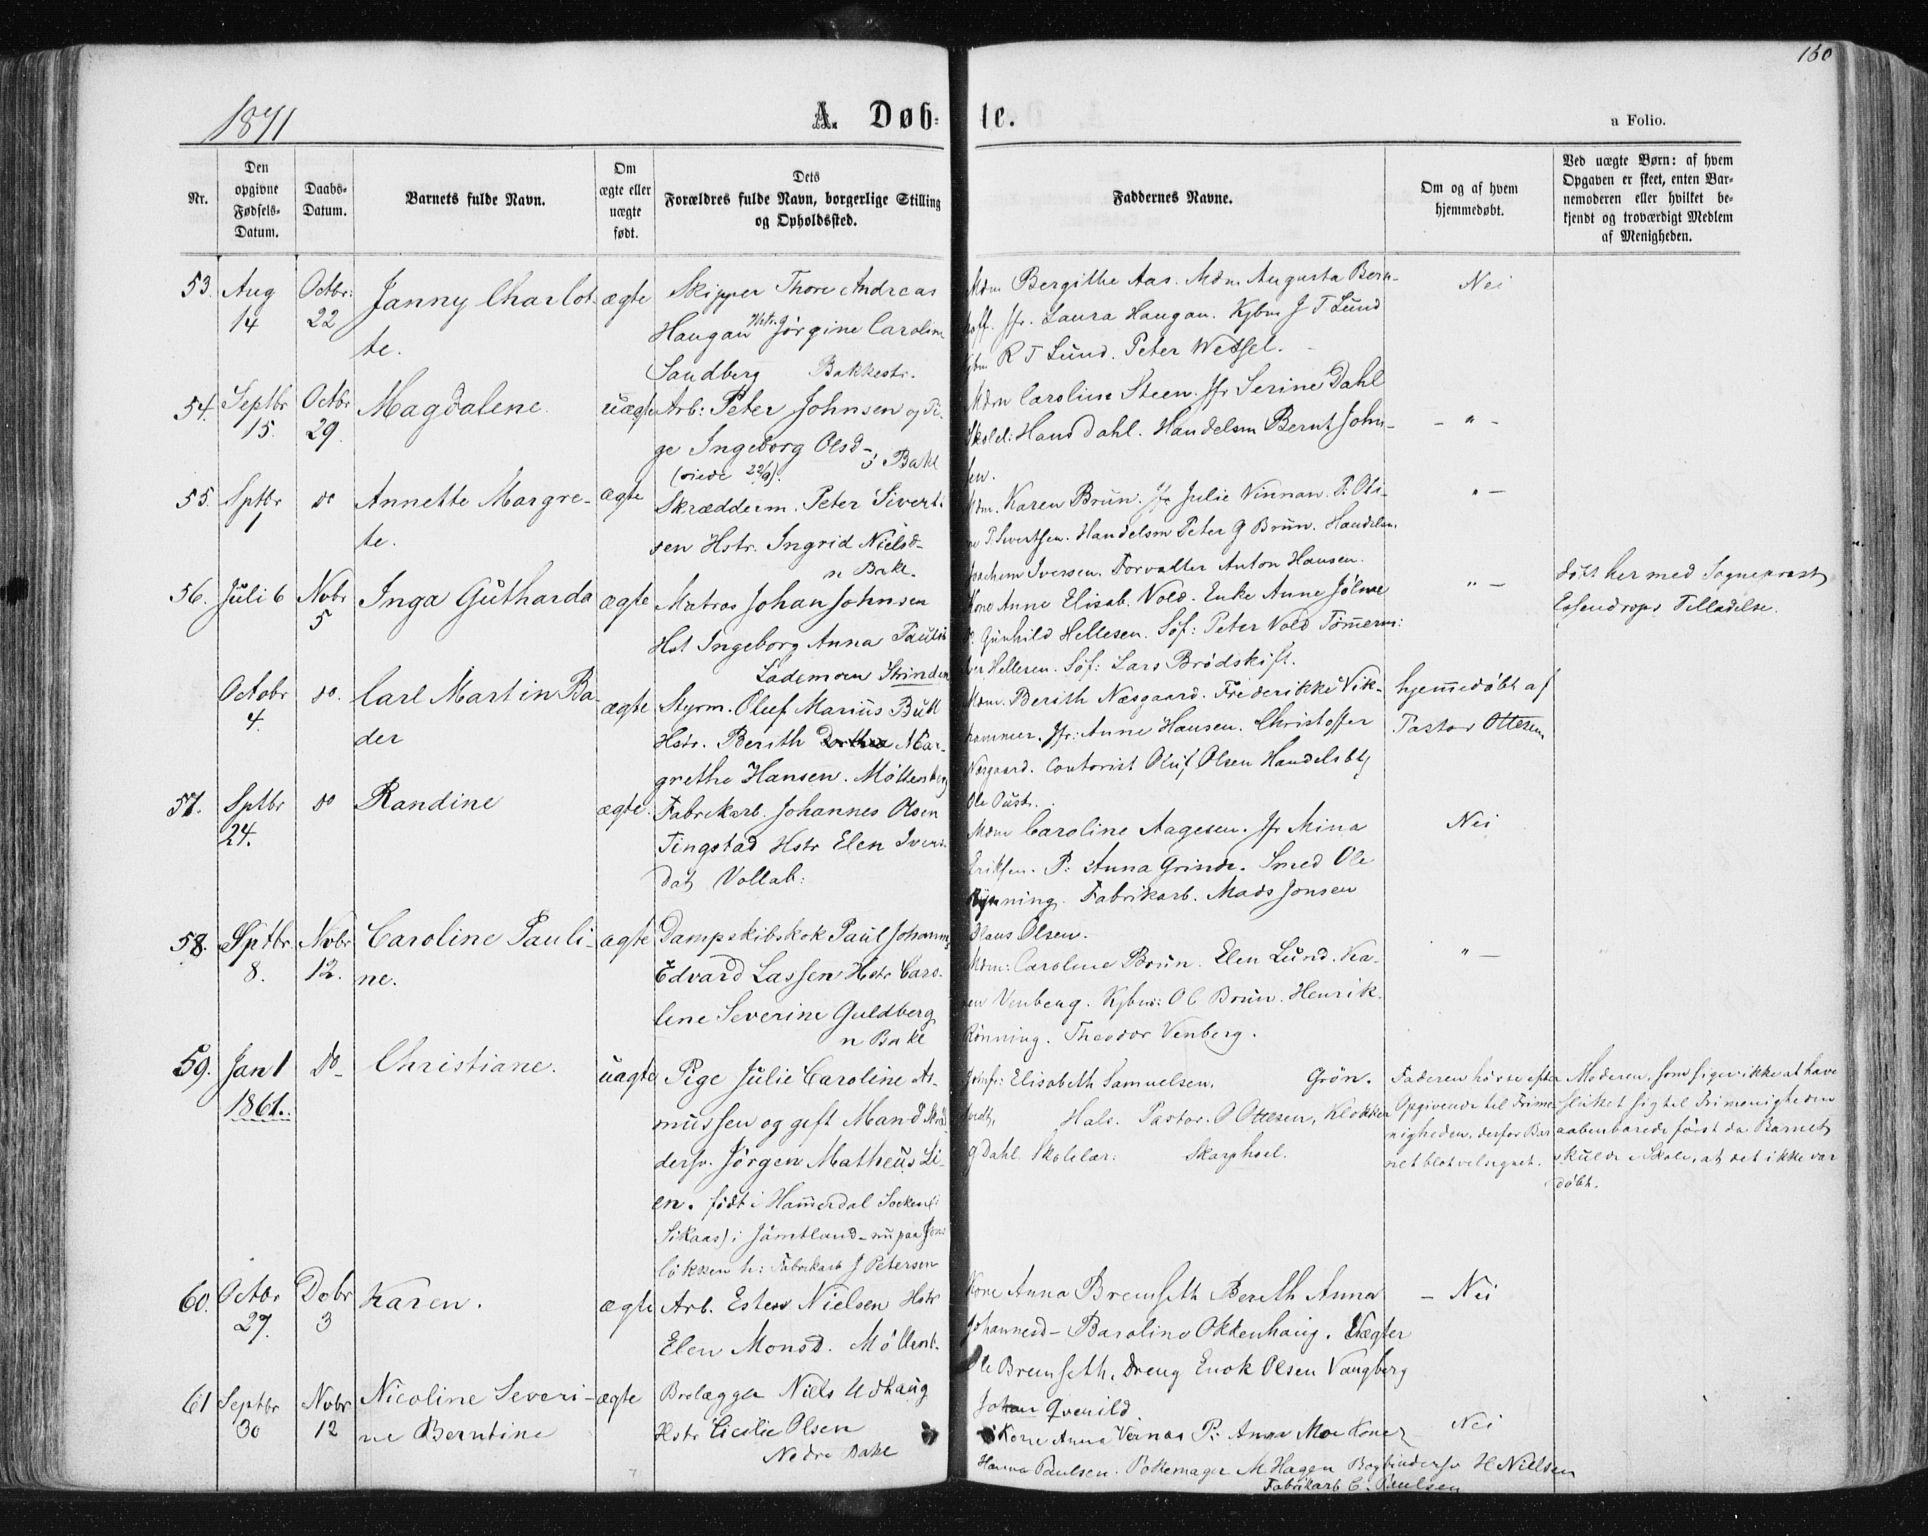 160
1871
A. Døb-
te.
a Folio.
Nr.
Den
opgivne
Fødsels-
Datum.
Daabs-
Datum.
Barnets fulde Navn.
Om
ægte eller
uægte
født.
Dets
Forældres fulde Navn, borgerlige Stilling
og Opholdssted.
Faddernes Navne.
Om og af hvem
hjemmedøbt.
Ved uægte Børn: af hvem
Opgaven er skeet, enten Bar-
nemoderen eller hvilket be-
kjendt og troværdigt Medlem
af Menigheden.
53. Aug 14
Octbr: 22
Janny Charlot-
te.
ægte
Skipper Thore Andreas
Haugan Hstr. Jörgine Caroline
Sandberg Bakkestr.
Mdm Bergithe Aas. Mdm Augusta Bern-
hoff. Jfr. Laura Haugan. Kjbm J T Lund
Kjbm R T Lund. Peter Wessel.
Nei
54. Septbr 15.
Octbr 29.
Magdalene.
uægte
Arb: Peter Johnsen og Pi-
ge Ingeborg Olsd-
(viede 22/9). Bakl
Mdm Caroline Steen. Jfr Serine Dahl
Skolel: Hans Dahl. Handelsm Bernt John-
sen.
- " -
55. Sptbr 1
do
Annette Margre-
te.
ægte
Skrædderm. Peter Sivert-
sen Hstr. Ingrid Nielsd-
n Bakl.
Mdm. Karen Brun. Jfr Julie Vinnan. P: Oli-
ne P. Sivertsen. Handelsm Peter G Brun. Handelsm.
Joachim Iversen. Forvalter Anton Hansen.
" -
56. Juli 6
Novbr 5
Inga Gutharda
ægte
Matros Johan Johnsen
Hst Ingeborg Anna
Lademoen Strinden
Kone Anne Elisab. Vold. Enke Anne
Gunhild Hellesen. Söf: Peter Vold Tömmerm:
Iver Hellesen. Söf: Lars Brödskift.
" -
döbt her med Sogneprest
Essendrops Tilladelse.
Octobr 4.
do.
Carl Martin Ba-
der
ægte
Styrm. Oluf Marius Bull
Hstr. Berith Dorthea Mar-
grethe Hansen. Möllenberg
Mdm. Berith Næsgaard. Frederikke Vik-
hammer. Jfr: Anne Hansen. Christoffer
Næsgaard. Contorist Oluf Olsen Handelsbtj
Ole
hjemmedöbt af
Pastor Ottesen
57. Sptbr 24.
do
Randine
ægte.
Fabrikarb. Johannes Olsen
Tingstad Hstr Elen Ivers-
dat Vollab:
Mdm Caroline Aagesen. Jfr Mina
Eriksen. P: Anna Grinde. Smed Ole
Rönning. Fabrikarb. Mads Jonsen
Olaus Olsen.
Nei
58. Sptbr. 8.
Novbr 12.
Caroline Pauli-
ne.
ægte
Dampskibskok Paul Johannes
Edvard Lassen Hstr Caro-
line Severine Guldberg
n Bakl
Mdm: Caroline Brun. Elen Lund. Ka-
ren Venberg. Kjbm: O C Brun. Henrik
Rönning. Theodor Venberg.
" -
59. Jan 1
1861.
Do
Christiane.
uægte
Pige Julie Caroline As-
mussen og gift Mand Skræd-
dersv. Jörgen Matheus Li-
en. födt i Hammerdal Socken (i
Sikaas) i Jämtland - nu paa
lökken h: Fabrikarb J Petersen
Jomfr: Elisabeth Samuelsen. Grön.
Hals. Pastor. O Ottesen, Klokker
G Dahl. Skolelær: Skarphoel.
Faderen hörse efter
Opgivende til Frime-
nigheden, derfor Bar-
net blot velsignet.
Moderen, som siger ikke at have
sluttet sig til Frimenigheden
aabenbarede först da Barnet
skulde i Skole, at det ikke var
döbt.
60. Octbr 27.
Dcbr 3
Karen.
ægte
Arb. Esten Nielsen Hstr
Elen Monsd. Möllenb.
Kone Anna Bremseth Bereth Anna
Johannesd- Barolino Okkenhaug. Vægter
Ole Bremseth. Dreng Enok Olsen Vangberg
Johan Qvenild
- Nei
61 Septbr 30
Novbr 12
Nicoline Severi-
ne Berntine
ægte
Brolægger Niels Udhaug
Hstr Cicilie Olsen
Nedre Bakl
Kone Anna P: Anna Moe Kone
Hanna Paulsen. Pottemager M Hagen Bogbindersv H Nielsen
Fabrikarb C. Paulsen
Nei